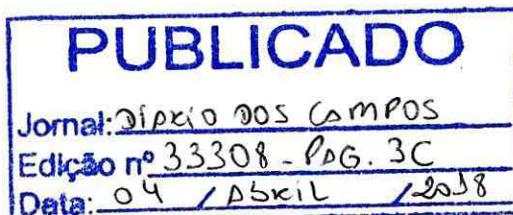 PUBLICADO
Jornal: DIÁRIO DOS CAMPOS
Edição nº 33308 - PÁG. 3C
Data: 04 / ABRIL / 2018